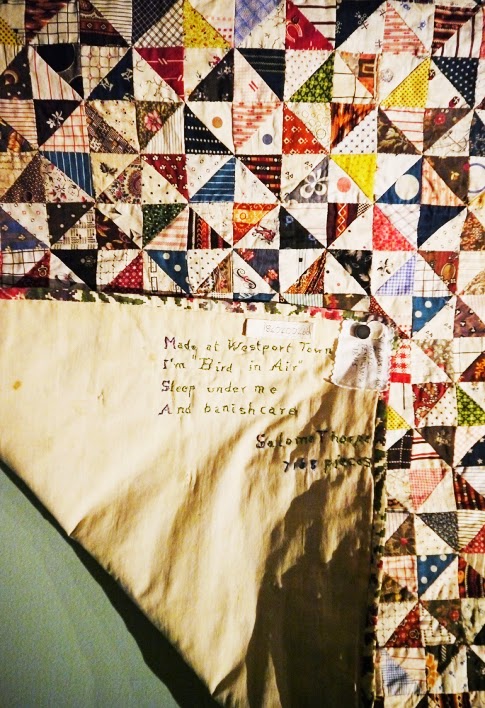 Made at Westport Town
I'm "Bird in Air"
Sleep under me
And banish care
Salome Thorpe
pieces